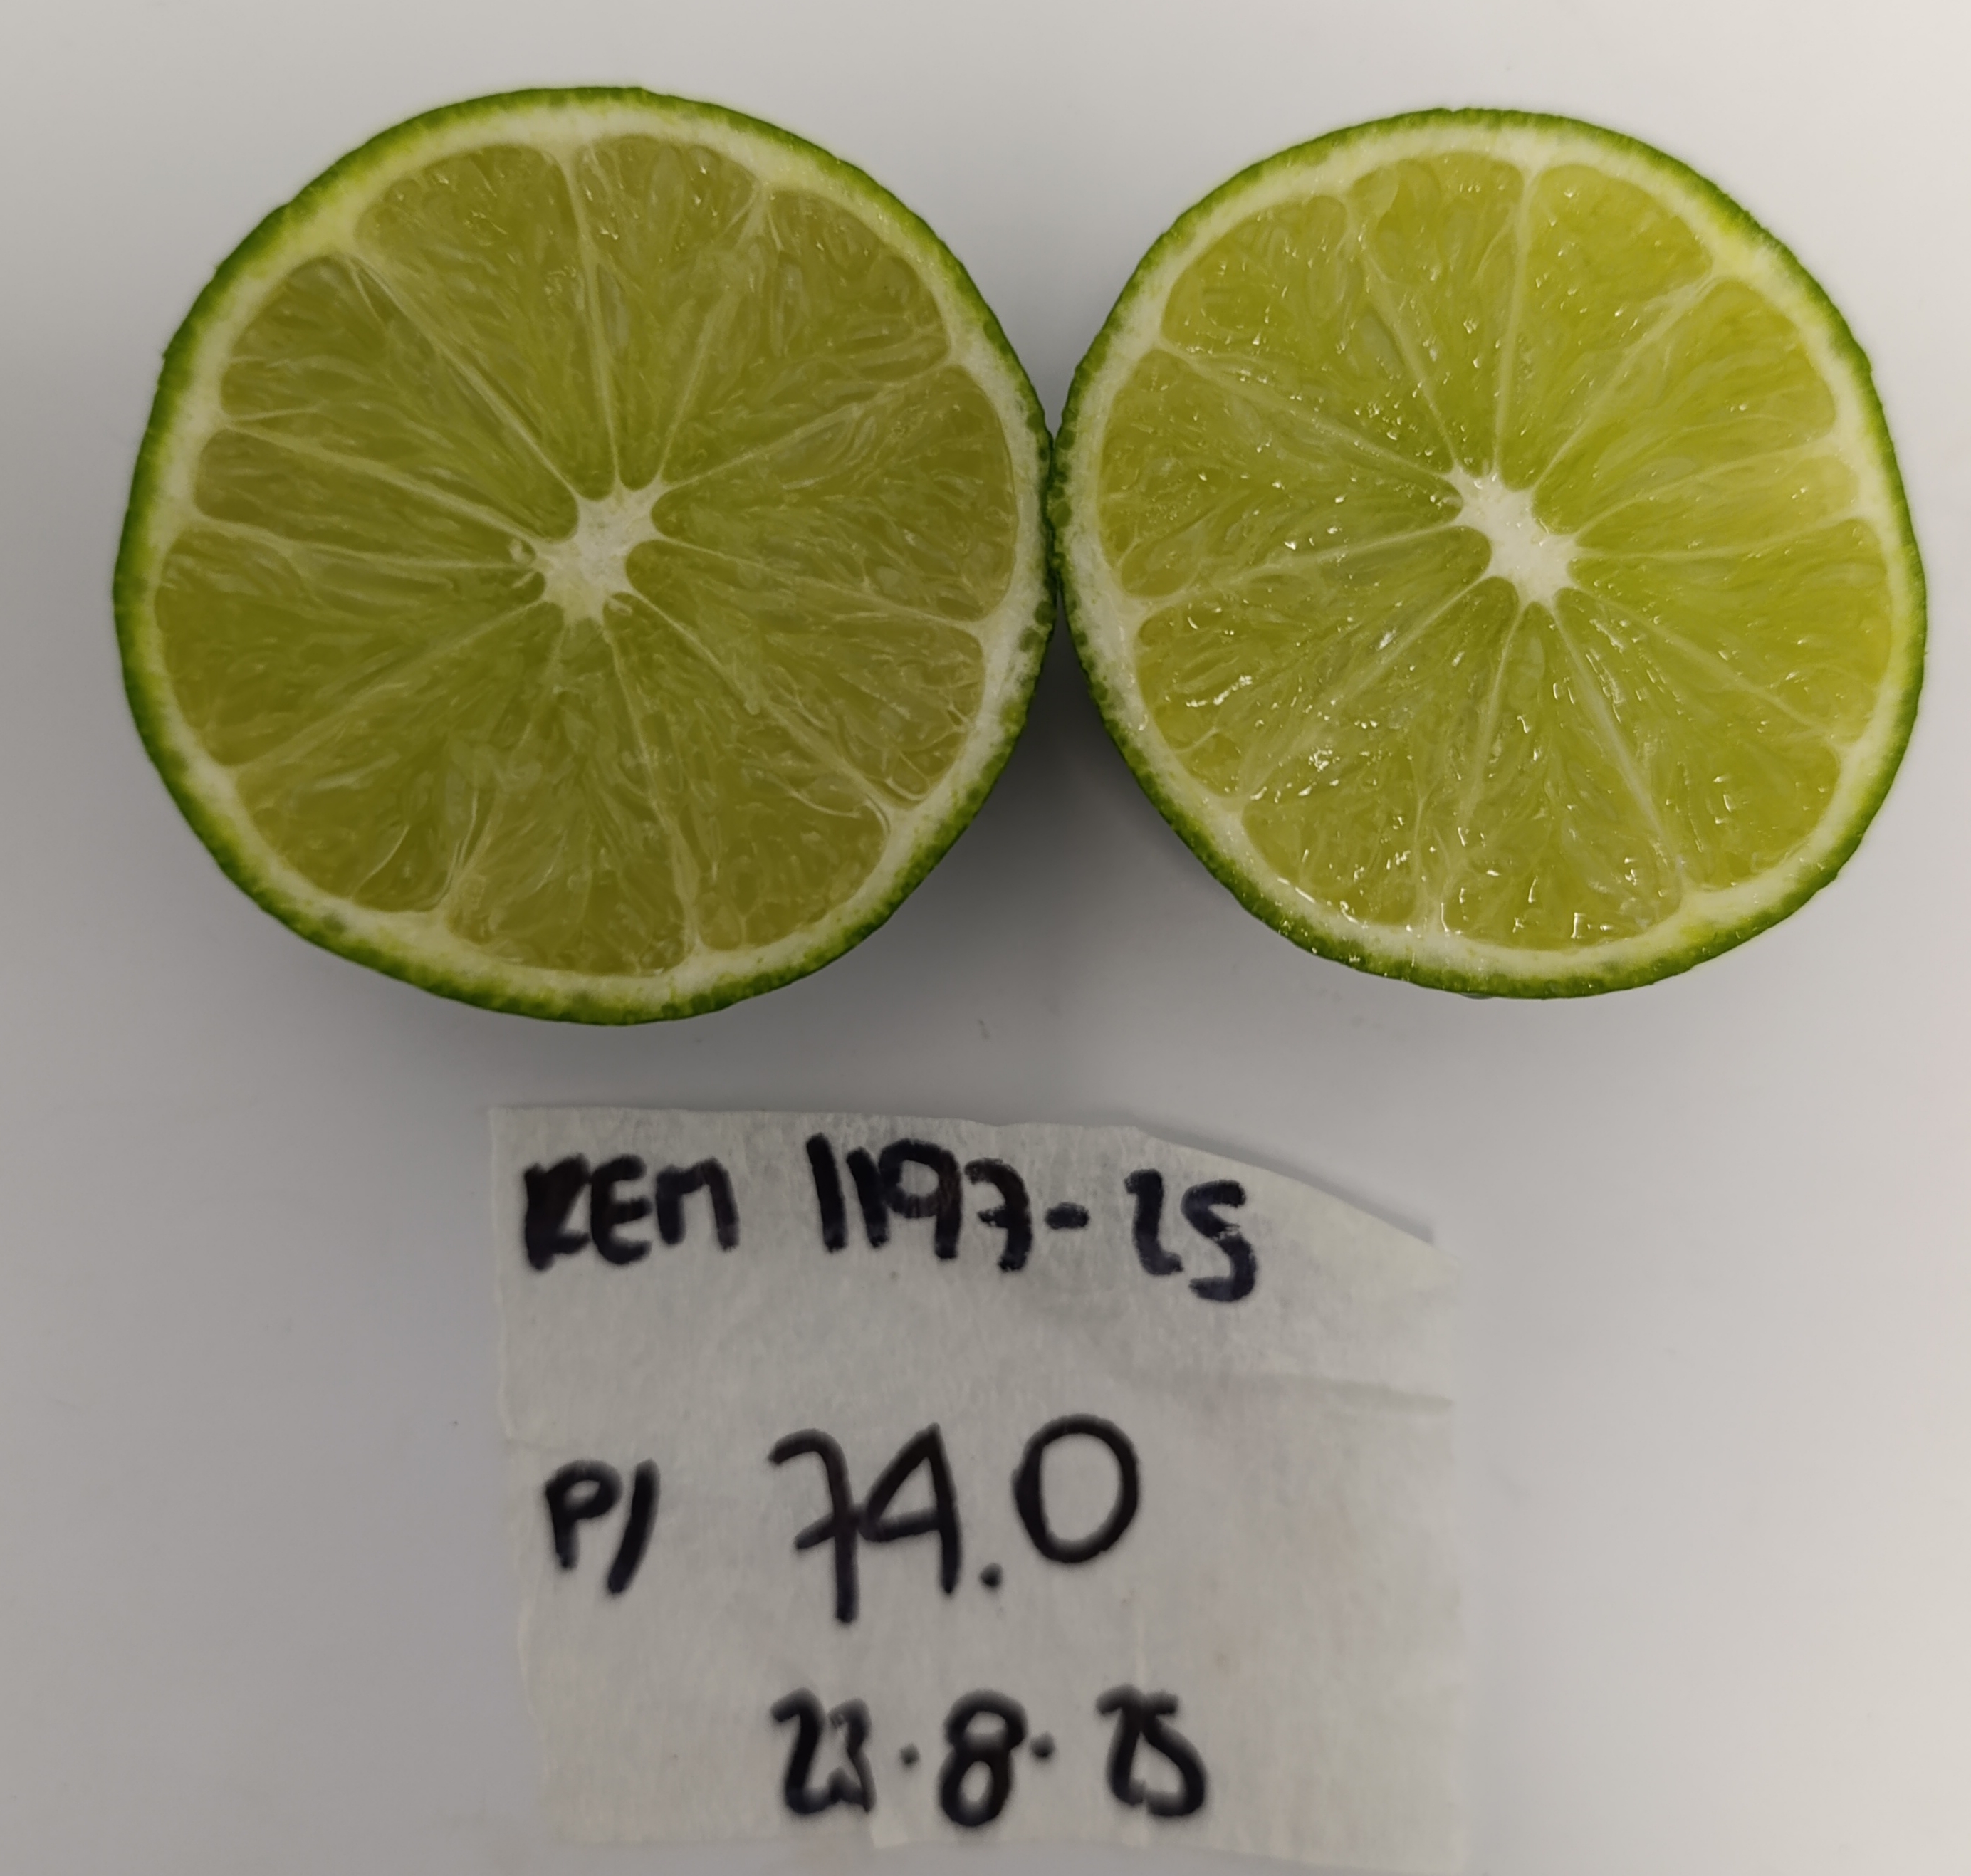 REM 1197-25
P/ 74.0
23.8.25